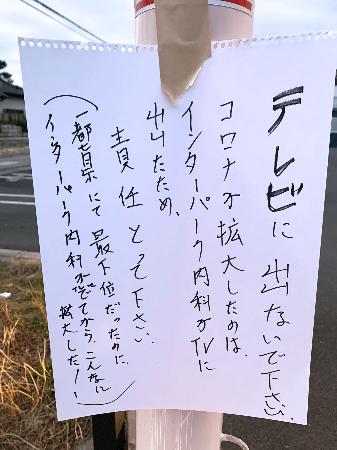 テレビに出ないで下さい。
コロナが拡大したのは、
インターパーク内科がTVに
出たため、
責任とって下さい。
(一都六県にて最下位だったのに、
インターパーク内科がでてから、こんなに
拡大した!!)